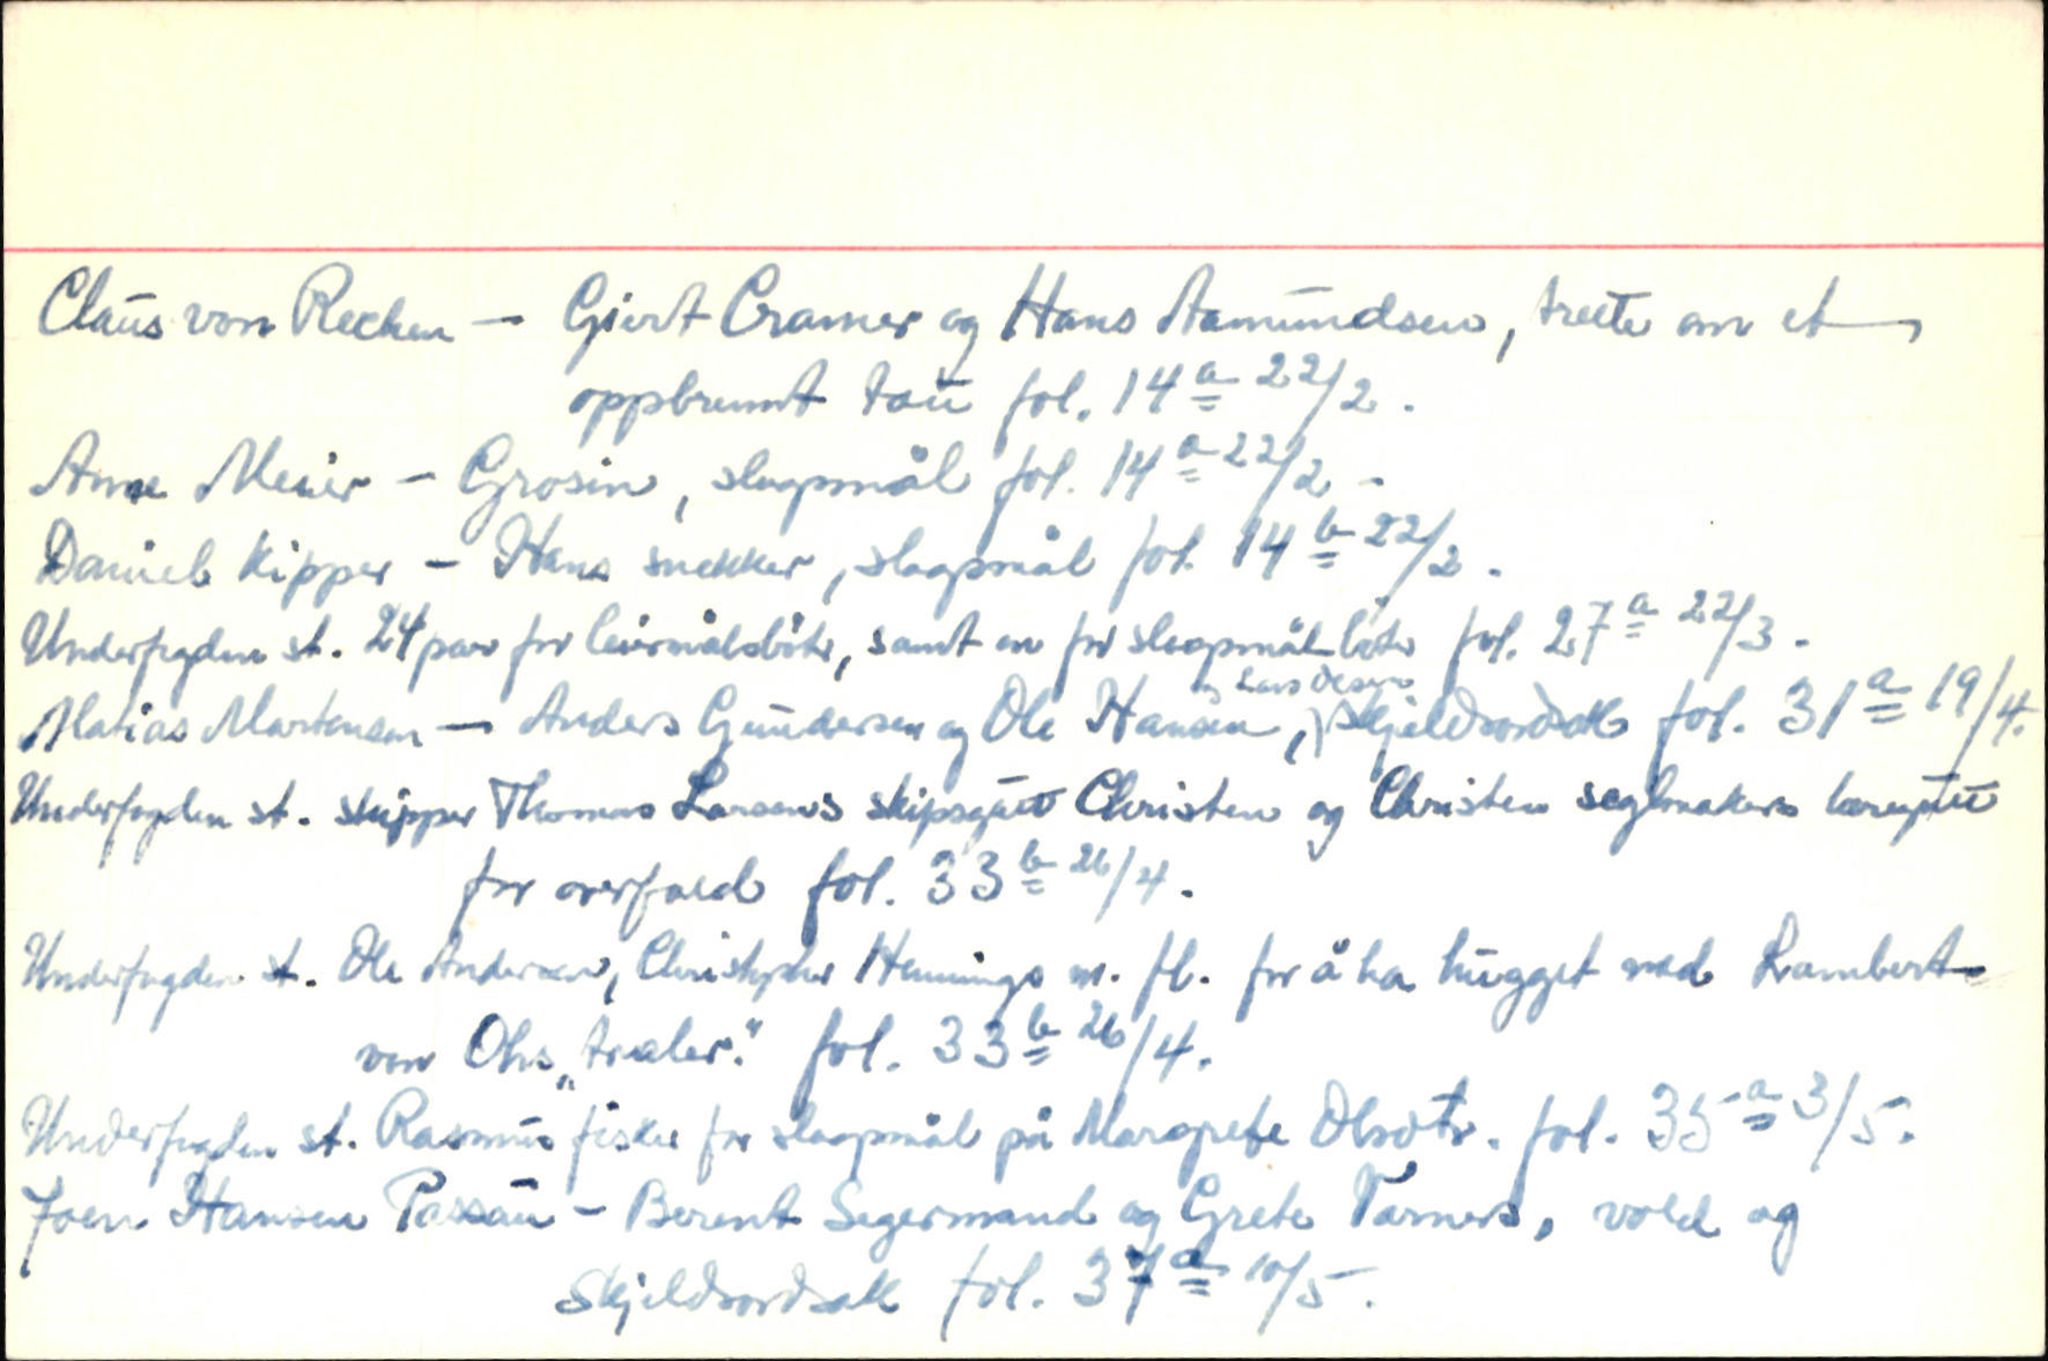 Claus von Recken – Giert Cramer og Hans Aamundsen, trette om et
oppbrunt tau fol. 14a 22/2.
Anne Meier – Grosin, slagsmål fol. 14a 22/2.
Daniel Kipper – Hans snekker, slagsmål fol. 14b 22/2.
Underfogden st. 24 par for leiermålsbøter, samt en for slagsmålsbøter fol. 27a 22/3.
og Lars Olsen
Matias Martensen – Anders Gundersen og Ole Hansen, skjeldsordsak fol. 31a 19/4.
Underfogden st. skipper Thomas Larsens skipsgutt Christen og Christen seglmakers læregutt
for overfald fol. 33b 26/4.
Underfogden st. Ole Andersen, Christopher Hennings m. fl. for å ha hugget ned Lambert
von Ohs „traler." fol. 33b 26/4.
Underfogden st. Rasmus fisker for slagsmål på Margrete Olsdtr. fol. 35a 3/5.
Joen Hansen Passau – Berent Segermand og Grete Tarners, vold og
skjeldsordsak fol. 37a 10/5.